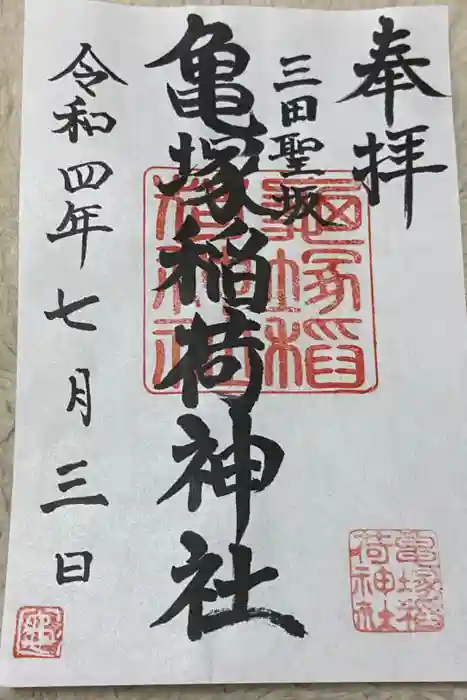 奉拝
三田聖坂
亀塚稲荷神社
令和四年七月三日
亀塚稲荷神社
亀塚稲荷神社